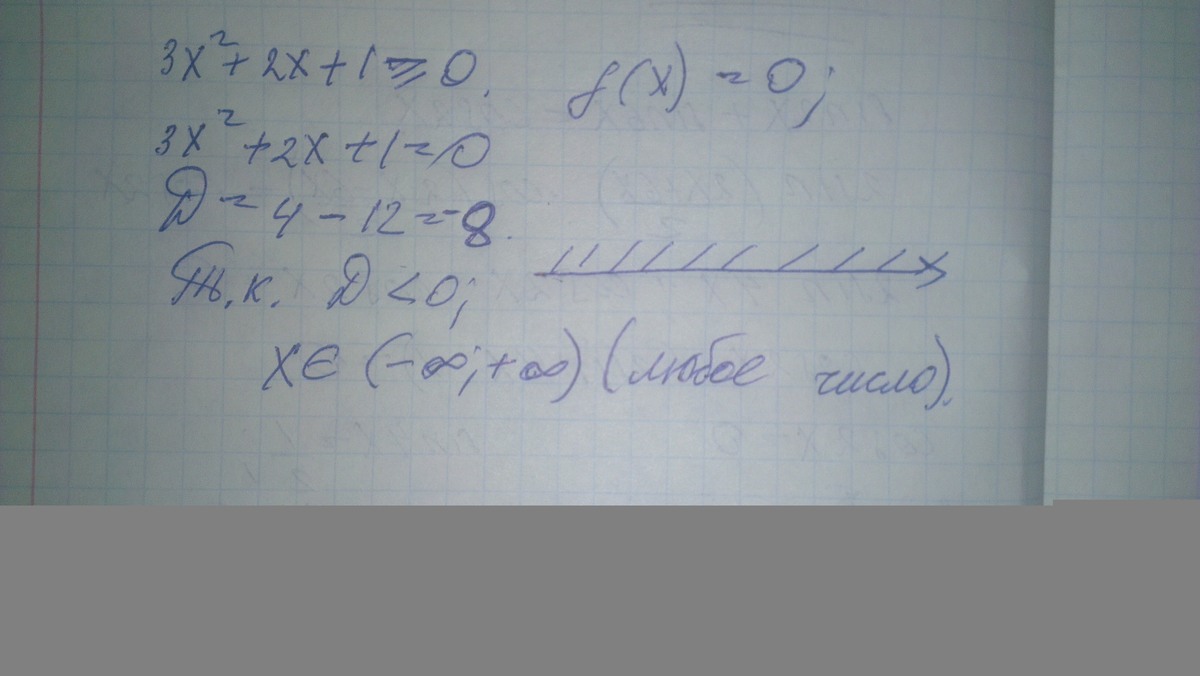 3x² + 2x + 1 ⩾ 0. f(x) = 0;
3x² + 2x + 1 = 0
D = 4 - 12 = -8.
Т.к. D < 0;
x
x ∈ (-∞; +∞) (любое число).